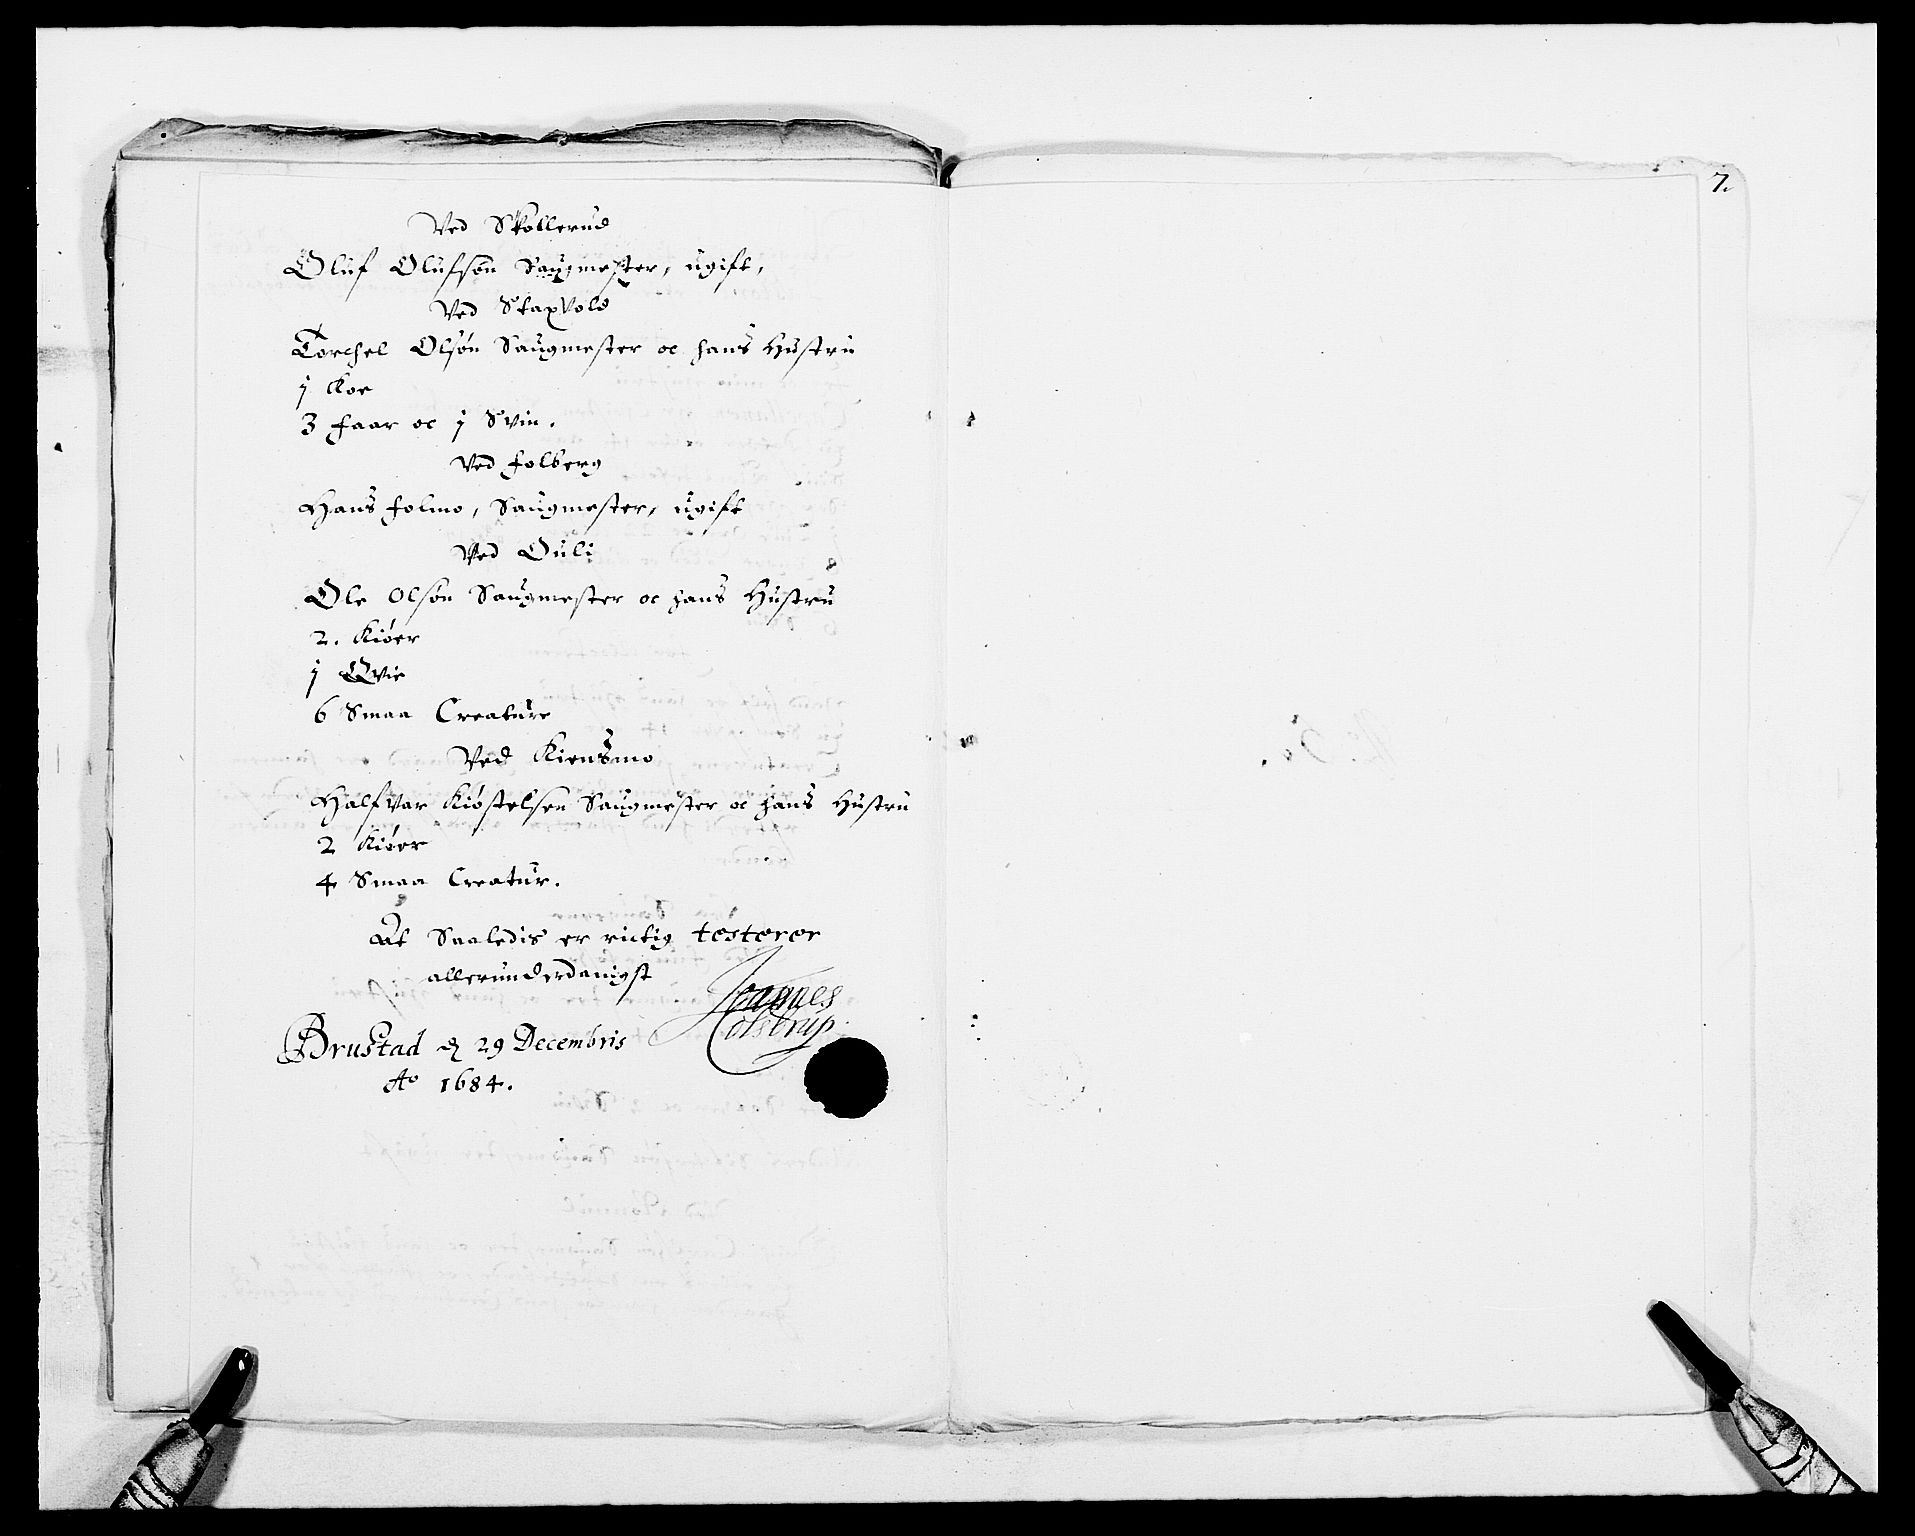 Ved Skollerud
Oluf Olufsøn Saugmester, ugift,
Ved Staxvold
Torchel Olsøn Saugmester oc hans Hustru
1 Koe
3 Faar oc 1 Svin.
Ved Folberg
Hans Folmo, Saugmester, ugift
Ved Ouli
Ole Olsøn Saugmester oc hans Hustru
2. Kiøer
1 Qvie
6 Smaa Creature
Ved Kiensmo
Halfvar Kiøstelsen Saugmester oc hans Hustru
2 Kiøer
4 Smaa Creatur.
At Saaledis er rictig testerer
allerunderdanigst
Joannes
Colstrup.
Brustad d 29 Decembris
Ao 1684.
7.